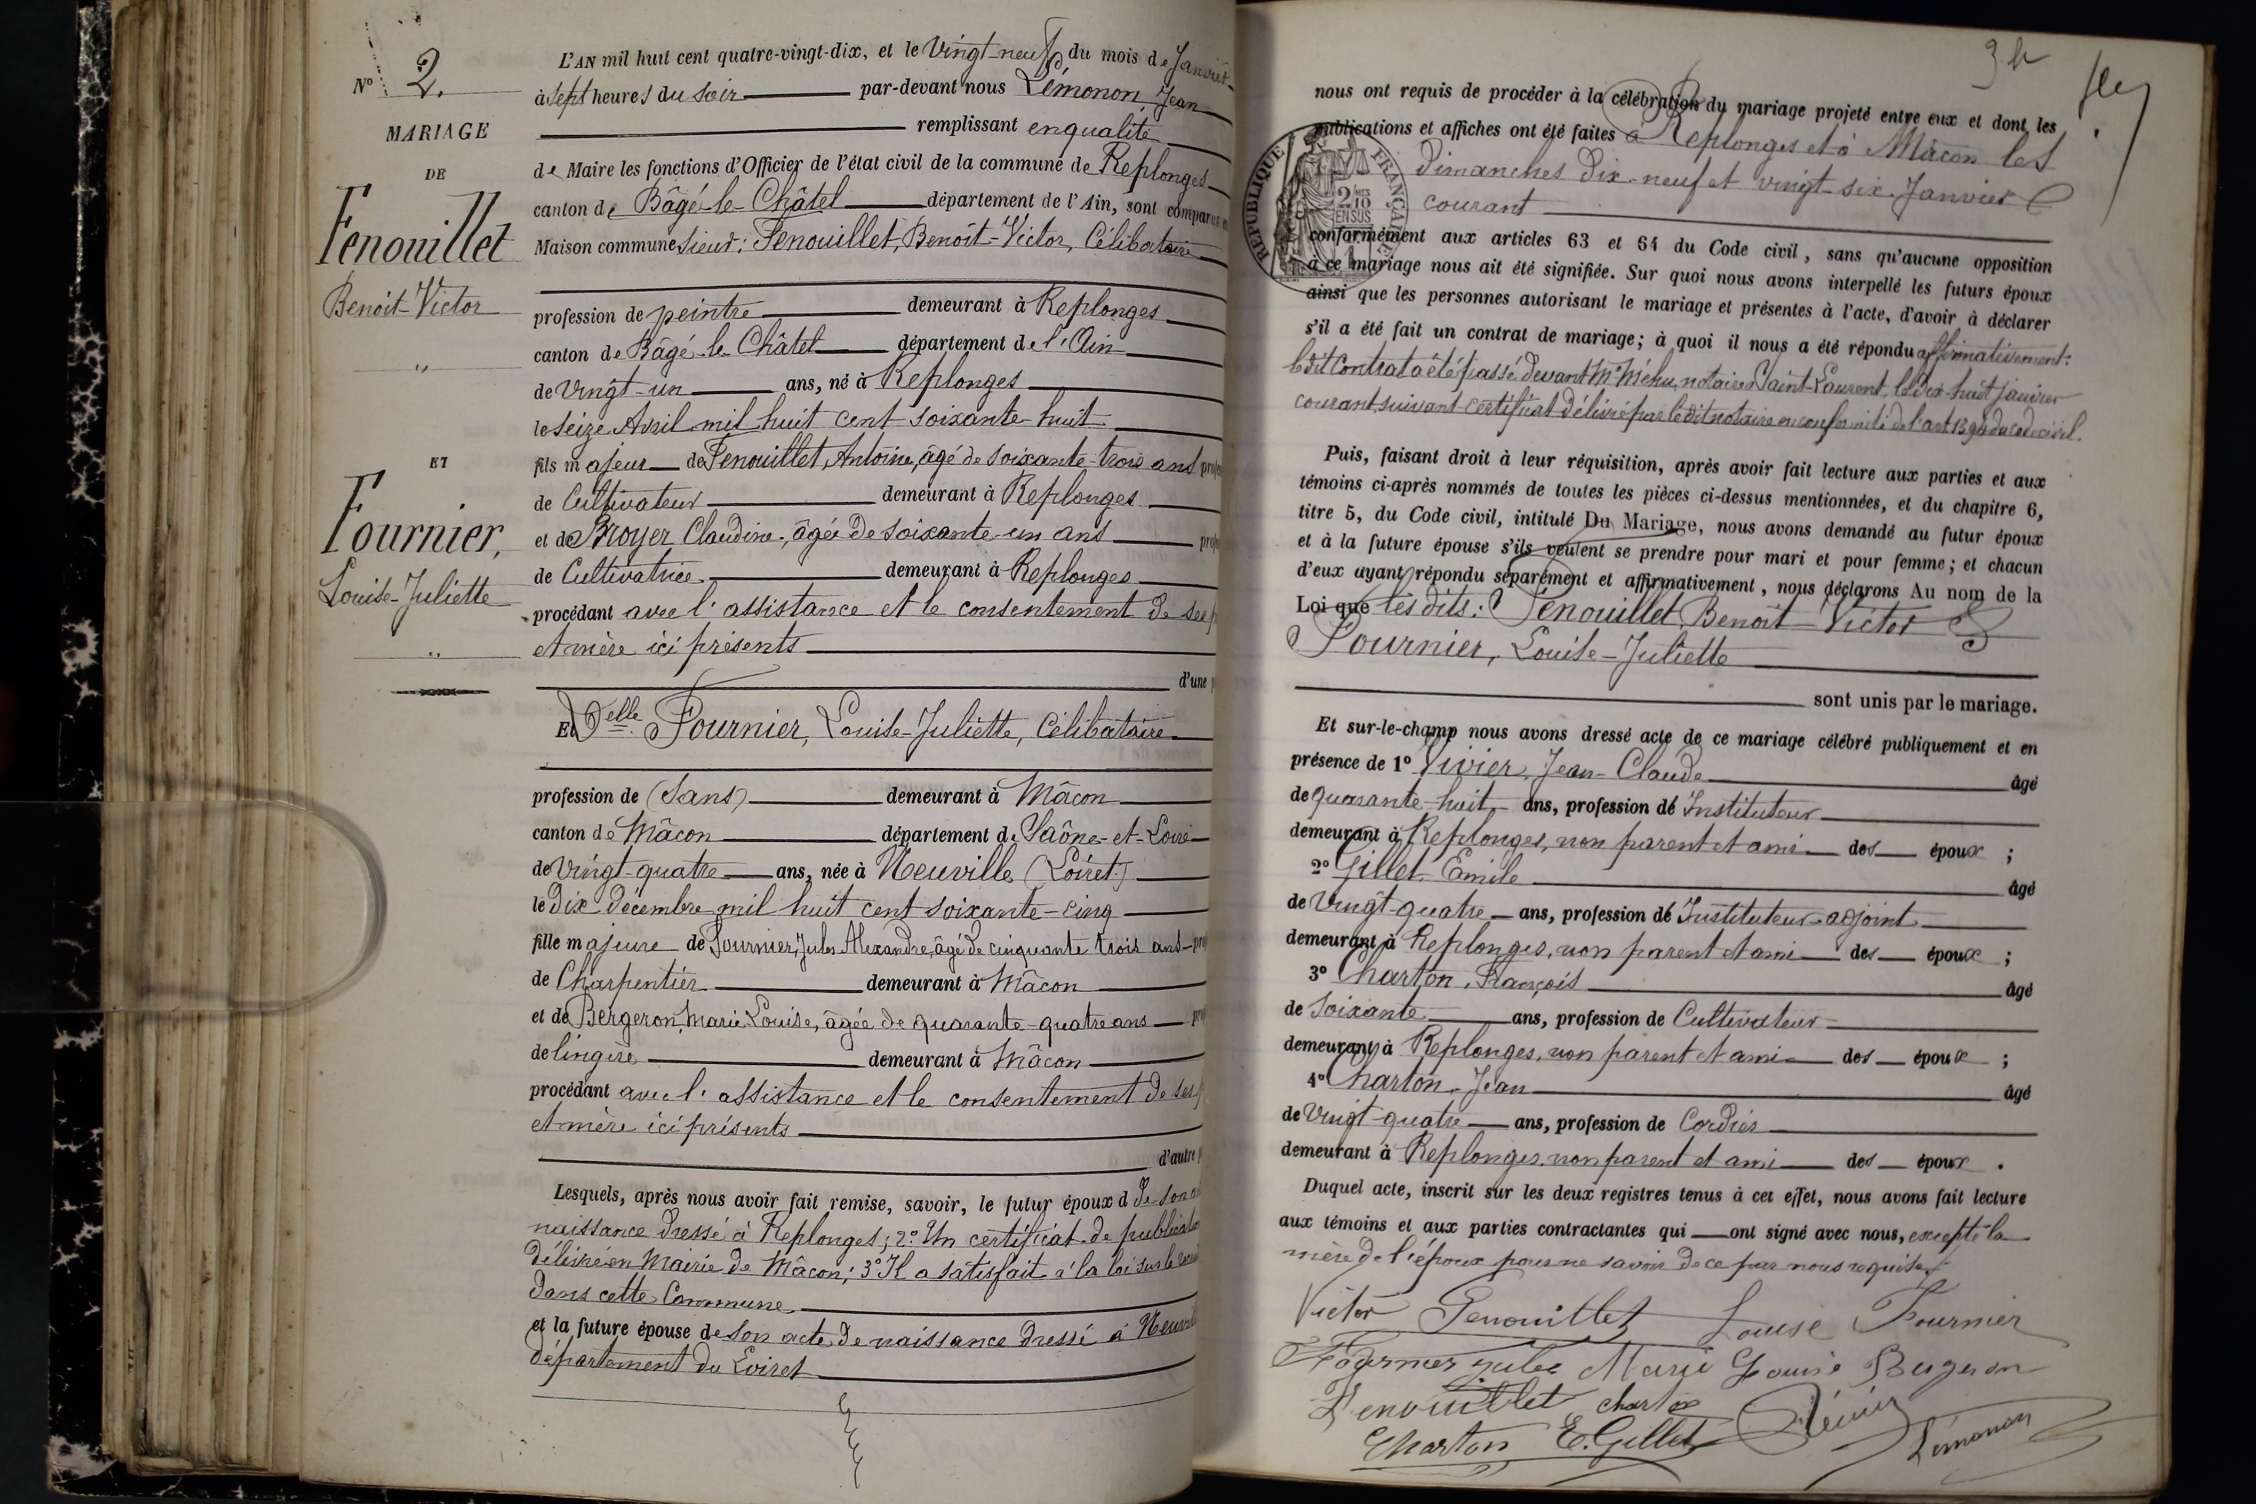 N° 2.
MARIAGE
DE
Fenouillet
Benoît-Victor
"
ET
Fournier,
Louise-Juliette
"
L'AN mil huit cent quatre-vingt-dix, et le Vingt-neuf du mois de Janvier
à sept heures du soir par-devant nous Lémonon, Jean
remplissant en qualité
de Maire les fonctions d'Officier de l'état civil de la commune de Replonges
canton de Bâgé-le-Châtel département de l'Ain, sont comparus
Maison commune sieur: Fenouillet, Benoît-Victor, Célibataire
profession de peintre demeurant à Replonges
canton de Bâgé-le-Châtel département de l'Ain
de vingt-un ans, né à Replonges
le seize Avril mil huit cent soixante-huit
fils majeur de Fenouillet, Antoine, âgé de soixante-trois ans
de Cultivateur demeurant à Replonges
et de Broyer Claudine, âgée de soixante-un ans
de Cultivatrice demeurant à Replonges
procédant avec l'assistance et le consentement de ses
et mère ici présents
d'une
Et Delle Fournier, Louise-Juliette, Célibataire
profession de (Sans) demeurant à Mâcon
canton de Mâcon département de Saône-et-Loire
de vingt-quatre ans, née à Neuville (Loiret)
le dix décembre mil huit cent soixante-cinq
fille majeure de Fournier, Jules Alexandre, âgé de cinquante trois ans
de Charpentier demeurant à Mâcon
et de Bergeron, Marie Louise, âgée de quarante-quatre ans
de lingère demeurant à Mâcon
procédant avec l'assistance et le consentement de ses
et mère ici présents
d'autre
Lesquels, après nous avoir fait remise, savoir, le futur époux d de son
naissance dressé à Replonges; 2° Un certificat de publication
délivré en Mairie de Mâcon; 3° Il a satisfait à la loi sur le
dans cette Commune
et la future épouse de son acte de naissance dressé à Neuville
département du Loiret
nous ont requis de procéder à la célébration du mariage projeté entre eux et dont les
publications et affiches ont été faites à Replonges et à Mâcon les
dimanches dix-neuf et vingt-six Janvier
courant
RÉPUBLIQUE FRANÇAISE
conformément aux articles 63 et 64 du Code civil, sans qu'aucune opposition
à ce mariage nous ait été signifiée. Sur quoi nous avons interpellé les futurs époux
ainsi que les personnes autorisant le mariage et présentes à l'acte, d'avoir à déclarer
s'il a été fait un contrat de mariage; à quoi il nous a été répondu affirmativement:
ledit contrat a été passé devant Me Méhu, notaire à Saint-Laurent, le dix-huit janvier
courant, suivant certificat délivré par ledit notaire en conformité de l'art 1394 du code civil.
Puis, faisant droit à leur réquisition, après avoir fait lecture aux parties et aux
témoins ci-après nommés de toutes les pièces ci-dessus mentionnées, et du chapitre 6,
titre 5, du Code civil, intitulé Du Mariage, nous avons demandé au futur époux
et à la future épouse s'ils veulent se prendre pour mari et pour femme; et chacun
d'eux ayant répondu séparément et affirmativement, nous déclarons Au nom de la
Loi que lesdits: Fenouillet, Benoît-Victor &
Fournier, Louise-Juliette
sont unis par le mariage.
Et sur-le-champ nous avons dressé acte de ce mariage célébré publiquement et en
présence de 1° Vivier, Jean-Claude âgé
de quarante-huit ans, profession de Instituteur
demeurant à Replonges, non parent et ami des époux;
2° Gillet, Emile âgé
de Vingt-quatre ans, profession de Instituteur-adjoint
demeurant à Replonges, non parent et ami des époux;
3° Charton, François âgé
de soixante ans, profession de Cultivateur
demeurant à Replonges, non parent et ami des époux;
4° Charton, Jean âgé
de Vingt-quatre ans, profession de Cordier
demeurant à Replonges, non parent et ami des époux.
Duquel acte, inscrit sur les deux registres tenus à cet effet, nous avons fait lecture
aux témoins et aux parties contractantes qui ont signé avec nous, excepté la
mère de l'époux pour ne savoir de ce par nous requise.
Victor Fenouillet Louise Fournier
Fournier jules Marie Louise Bergeron
Fenouillet charton
Charton E. Gillet Vivier Lémonon